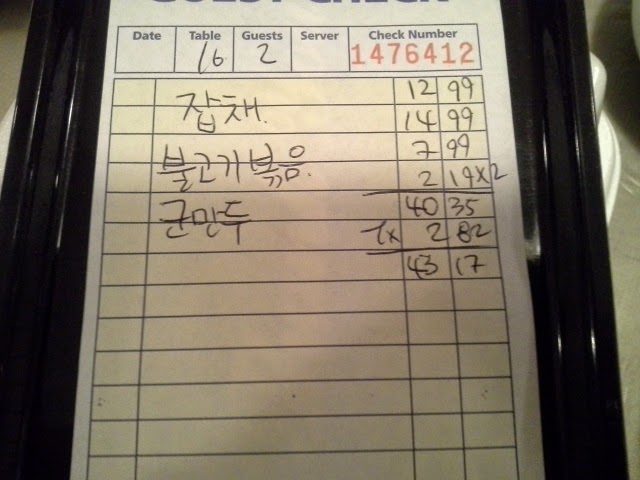 GUEST CHECK
Date Table Guests Server Check Number
16 2 1476412
잡채. 12 99
14 99
불고기볶음. 7 99
2 19x2
군만두 40 35
Tx 2 82
43 17